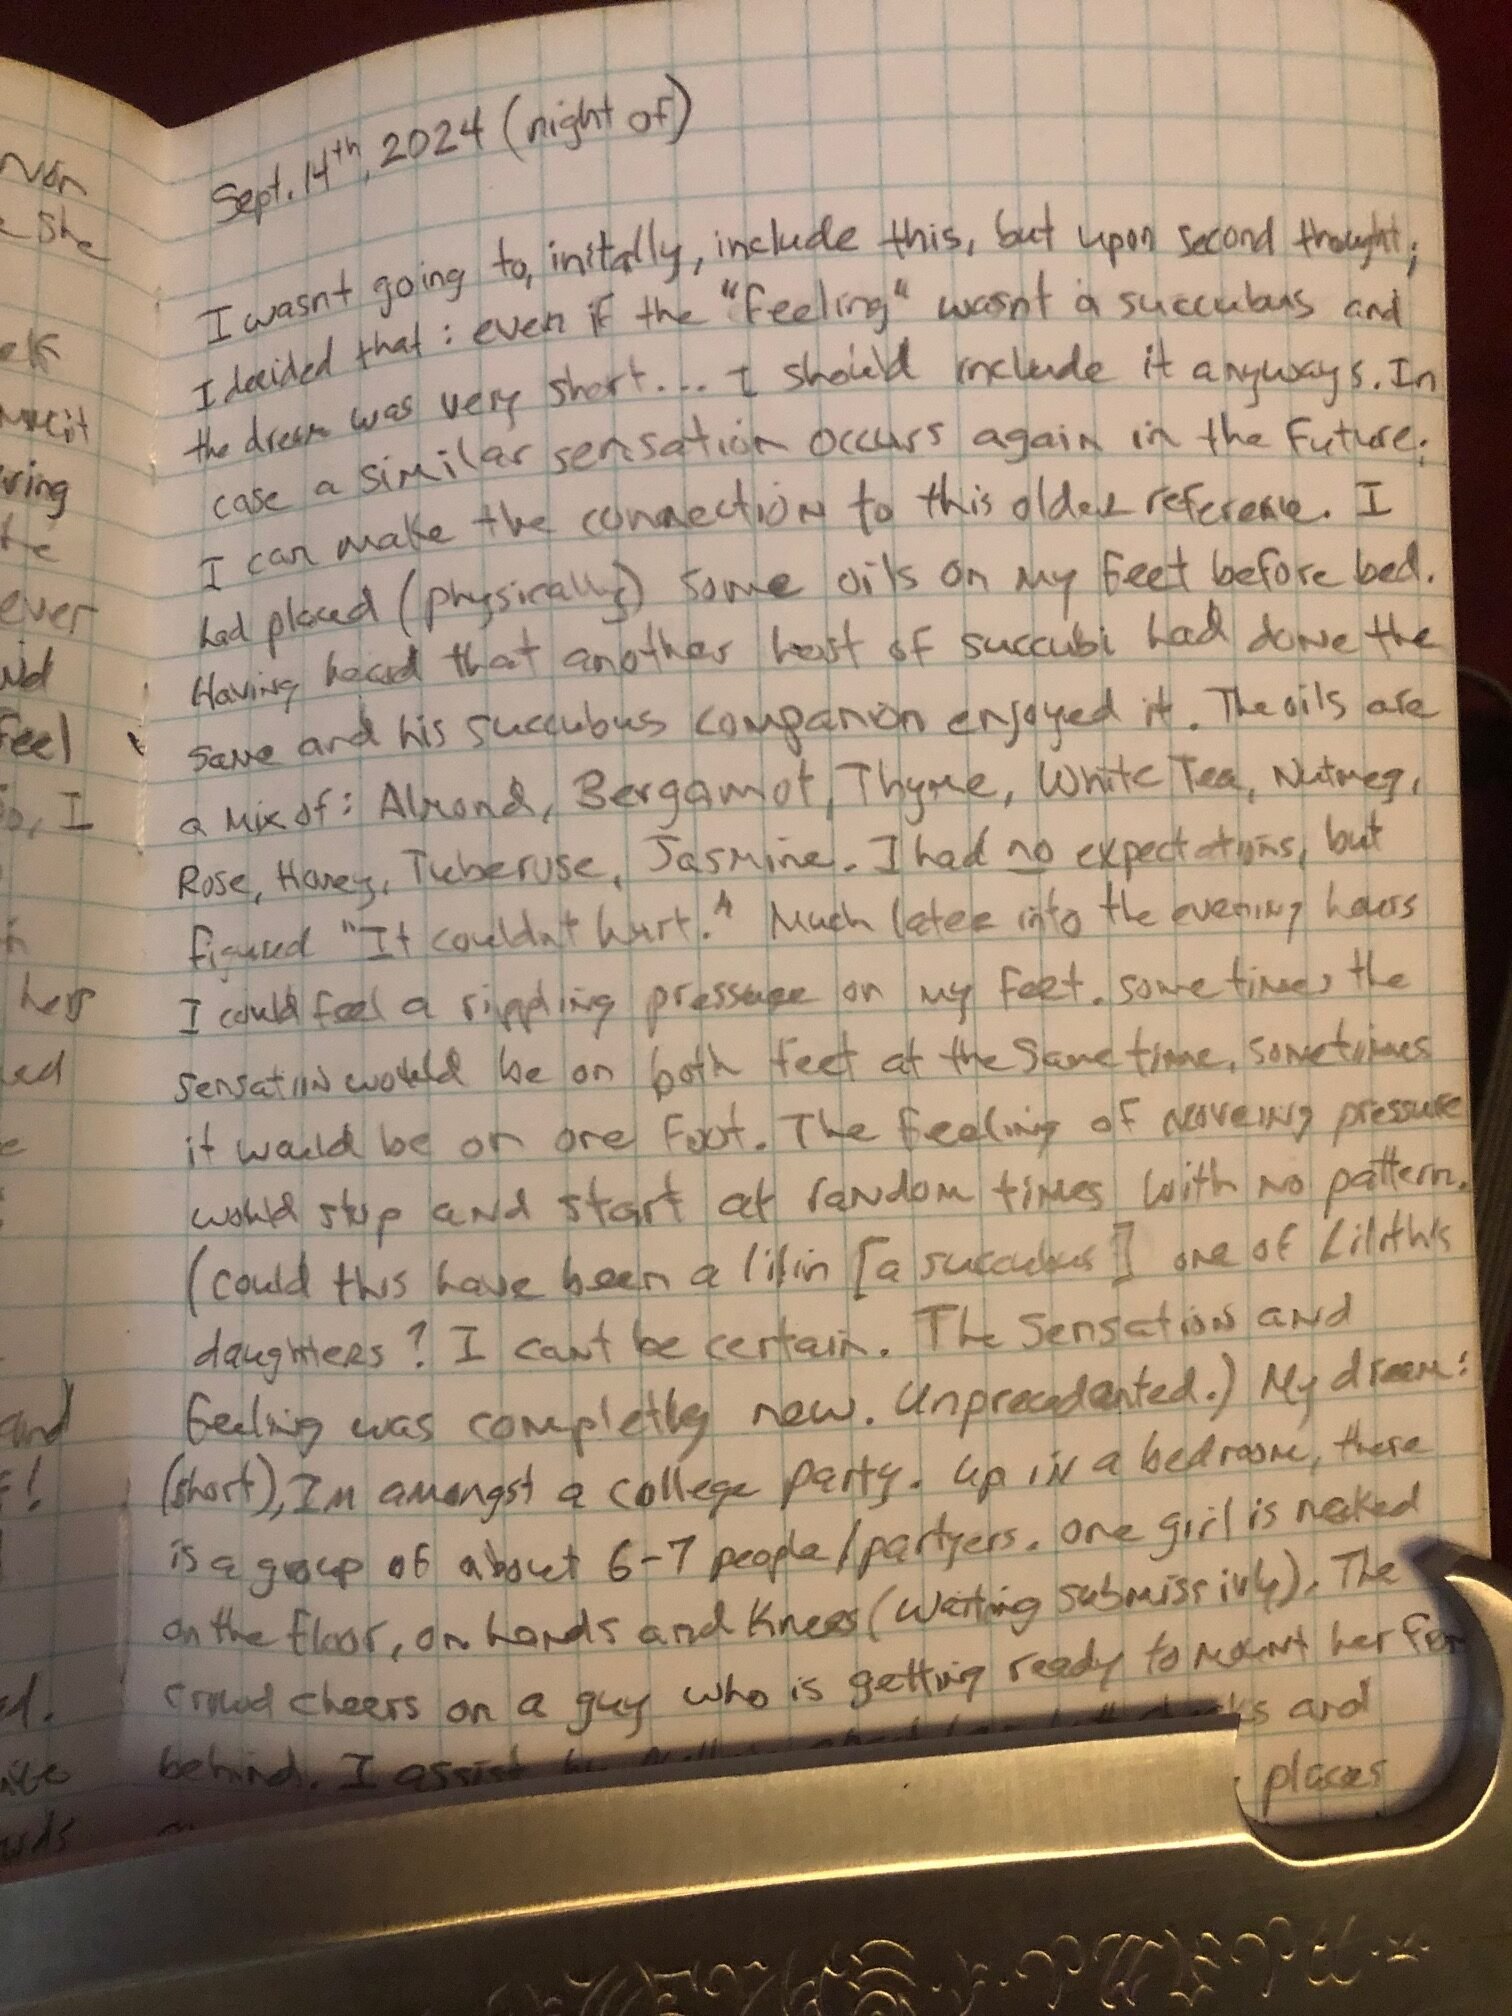 Non
e she
ring
ever
Feel
, I
hers
and
Sept. 14th, 2024 (night of)
I wasnt going to, initally, include this, but upon second thought;
I decided that: even if the "feeling" wasnt a succubus and
the dream was very short... I should include it anyways. In
case a similar sensation occurs again in the future;
I can make the connection to this older reference. I
had placed (physically) some oils on my feet before bed.
Having heard that another host of succubi had done the
same and his succubus companion enjoyed it. The oils are
a mix of: Almond, Bergamot, Thyme, White Tea, Nutmeg,
Rose, Honey, Tuberuse, Jasmine. I had no expectations, but
figured "It couldnt hurt." Much later into the evening hours
I could feel a rippling pressure on my feet. sometimes the
sensation would be on both feet at the same time, sometimes
it would be on one foot. The feeling of moveing pressure
would stop and start at random times with no pattern.
(could this have been a lilin [a succubus] one of Lilith's
daughters? I cant be certain. The sensation and
feeling was completly new. Unprecedented.) My dream:
(short), Im amongst a college party. Up in a bedroom, there
is a group of about 6-7 people/partyers. One girl is naked
on the floor, on hands and knees (waiting submissivly). The
crowd cheers on a guy who is getting ready to mount her from
behind. I assist and
places